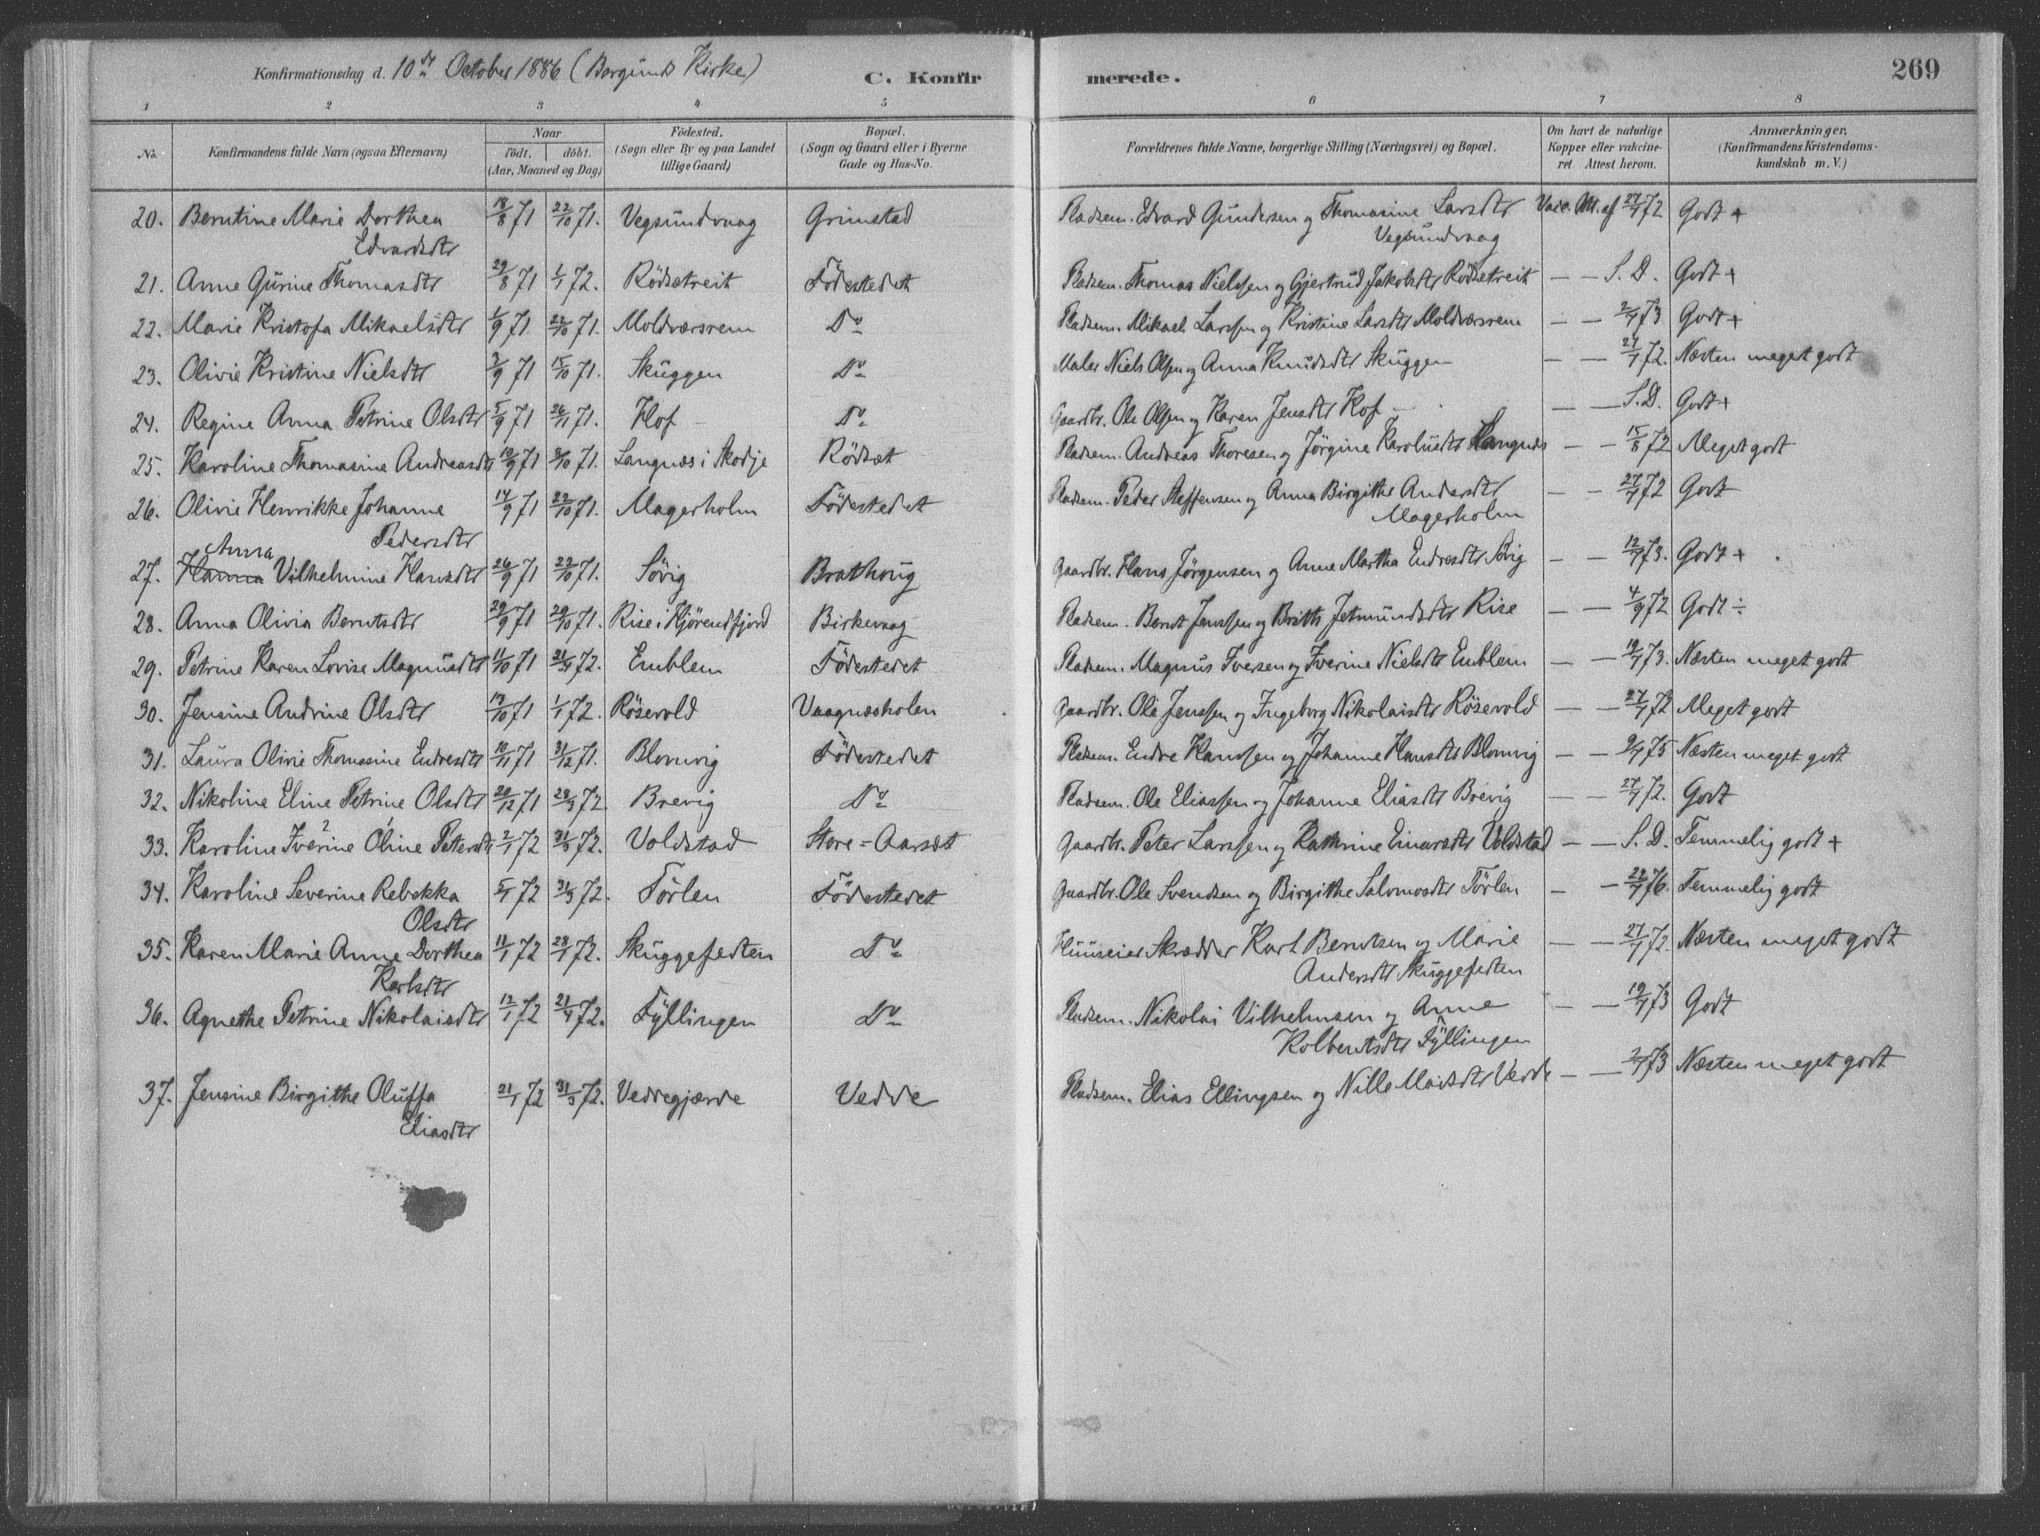 Konfirmationsdag d. 10de October 1886 (Borgunds Kirke) C. Konfirmerede. 269
1 2 3 4 5 6 7 8
No. Konfirmandens fulde Navn (ogsaa Efternavn) Naar födt. döbt. (Aar, Maaned og Dag) Födested. (Sogn eller By og paa Landet tillige Gaard) Bopæl. (Sogn og Gaard eller i Byerne Gade og Hus-No. Forældrenes fulde Navne, borgerlige Stilling (Næringsvei) og Bopæl. Om havt de naturlige Kopper eller vakcineret. Attest herom. Anmærkninger. (Konfirmandens Kristendomskundskab m. V.)
20. Berntine Marie Dorthea 18/8 71 22/10 71. Vegsundvaag Grimstad Pladsm. Edvard Gundersen og Thomasine Larsdtr Vacc. Att. af 27/7 72 Godt +
Edvardsdtr Vegsundvaag
21. Anne Gurine Thomasdtr 29/8 71 1/1 72. Rödsetreit Födestedet Pladsm. Thomas Nielssen og Gjertrud Jakobsdtr Rödsetreit — — S. D. Godt +
22. Marie Kristofa Mikaelsdtr 1/9 71 22/10 71. Moldværsrem Do Pladsm. Mikael Larssen og Kristine Larsdtr Moldværsrem — — 2/7 73 Godt +
23. Olivie Kristine Nielsdtr 3/9 71 15/10 71. Skuggen Do Maler Niels Olsen og Anna Knudsdtr Skuggen — — 27/7 72. Næsten meget godt
24. Regine Anna Petrine Olsdtr 5/9 71 26/11 71. Hof — Do Gaardbr. Ole Olsen og Karen Jensdtr Hof — — — S.D. Godt +
25. Karoline Thomasine Andreasdtr 10/9 71 /10 71. Langnæs i Skodje Rödset Pladsm. Andreas Thoresen og Jörgine Karolusdtr Langnæs — — 15/8 72 Meget godt
26. Olivie Henrikke Johanne 14/9 71 22/10 71. Magerholm Födestedet Pladsm. Peder Steffensen og Anna Birgithe Andersdtr — — 27/7 72 Godt
Pedersdtr Magerholm
27. Hanna Anna Vilhelmine Hansdtr 26/9 71 22/10 71. Sövig Brathoug Gaardbr. Hans Jörgensen og Anne Martha Endresdtr Sövig — — 12/7 73. Godt +
28. Anna Olivia Berntsdtr 29/9 71 29/10 71. Rise i Hjörendfjord Birkevaag Pladsm. Bernt Jenssen og Brith Jetmundsdtr Rise — — 4/9 72 Godt ÷
29. Petrine Karen Lovise Magnusdtr 11/10 71 21/4 72. Emblem Födestedet Pladsm. Magnus Iversen og Iverine Nielsdtr Emblem — — 19/7 73. Næsten meget godt
30. Jensine Andrine Olsdtr 13/10 71 1/1 72. Rösevold Vaagnæsholen Gaardbr. Ole Jenssen og Ingeborg Nikolaisdtr Rösevold — — 27/7 72 Meget godt
31. Laura Olivie Thomasine Endresdtr 10/11 71 31/12 71. Blomvig Födestedet Pladsm. Endre Hanssen og Johanne Hansdtr Blomvig — — 9/7 75 Næsten meget godt
32. Nikoline Eline Petrine Olsdtr 20/12 71 28/3 72. Brevig Do Pladsm. Ole Eliassen og Johanne Eliasdtr Brevig — — 27/7 72. Godt
33. Karoline Iverine Oline Petersdtr 2/1 72 31/3 72. Voldstad Store-Aarsæt Gaardbr. Peter Larssen og Kathrine Einarsdtr Voldstad — — S. D. Temmelig godt +
34. Karoline Severine Rebekka 5/1 72 31/3 72. Törlen Födestedet Gaardbr. Ole Svendsen og Birgithe Salomosdtr Törlen — — 22/7 76. Temmelig godt
Olsdtr
35. Karen Marie Anne Dorthea 11/1 72 28/1 72. Skuggefedten Do Huuseier Skrædder Karl Berntsen og Marie — — 27/7 72. Næsten meget godt
Karlsdtr Andersdtr Skuggefedten
36. Agnethe Petrine Nikolaisdtr 12/1 72 21/4 72. Fyllingen Do Pladsm. Nikolai Vilhelmsen og Anne — — 19/7 73 Godt
Kolbentsdtr Fyllingen
37. Jensine Birgithe Oluffa 21/1 72 31/3 72. Vedregjærde Vedde Pladsm. Elias Ellingsen og Nille Matsdtr Vedde — — 2/7 73 Næsten meget godt
Eliasdtr